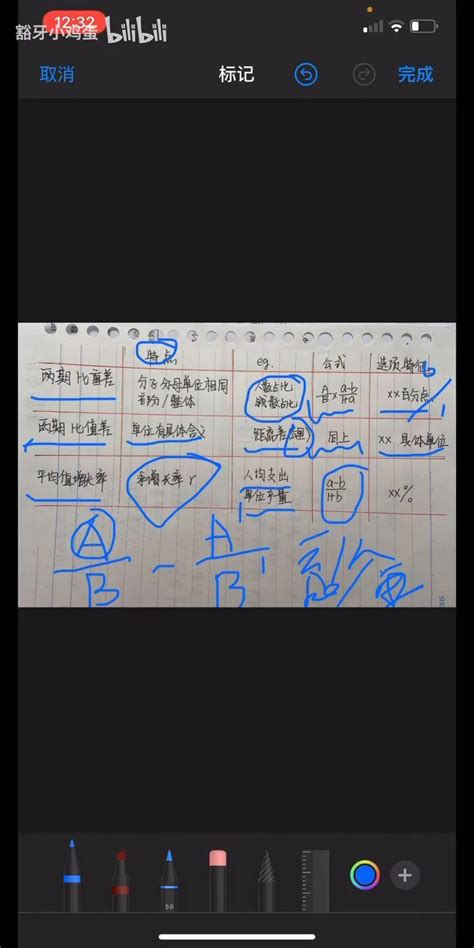 12:32
豁牙小鸡蛋 bilibili
取消 标记 完成
特点 eg. 公式 选项特征
两期比重差 分子分母单位相同 部分/整体 人数占比 钱数占比 A/B × a-b/1+a xx百分点
两期比值差 单位有具体含义 距离差 同上 xx 具体单位
平均值增长率 求增长率 r 人均支出 单位产量 a-b/1+b xx%
A/B - A/B'
50